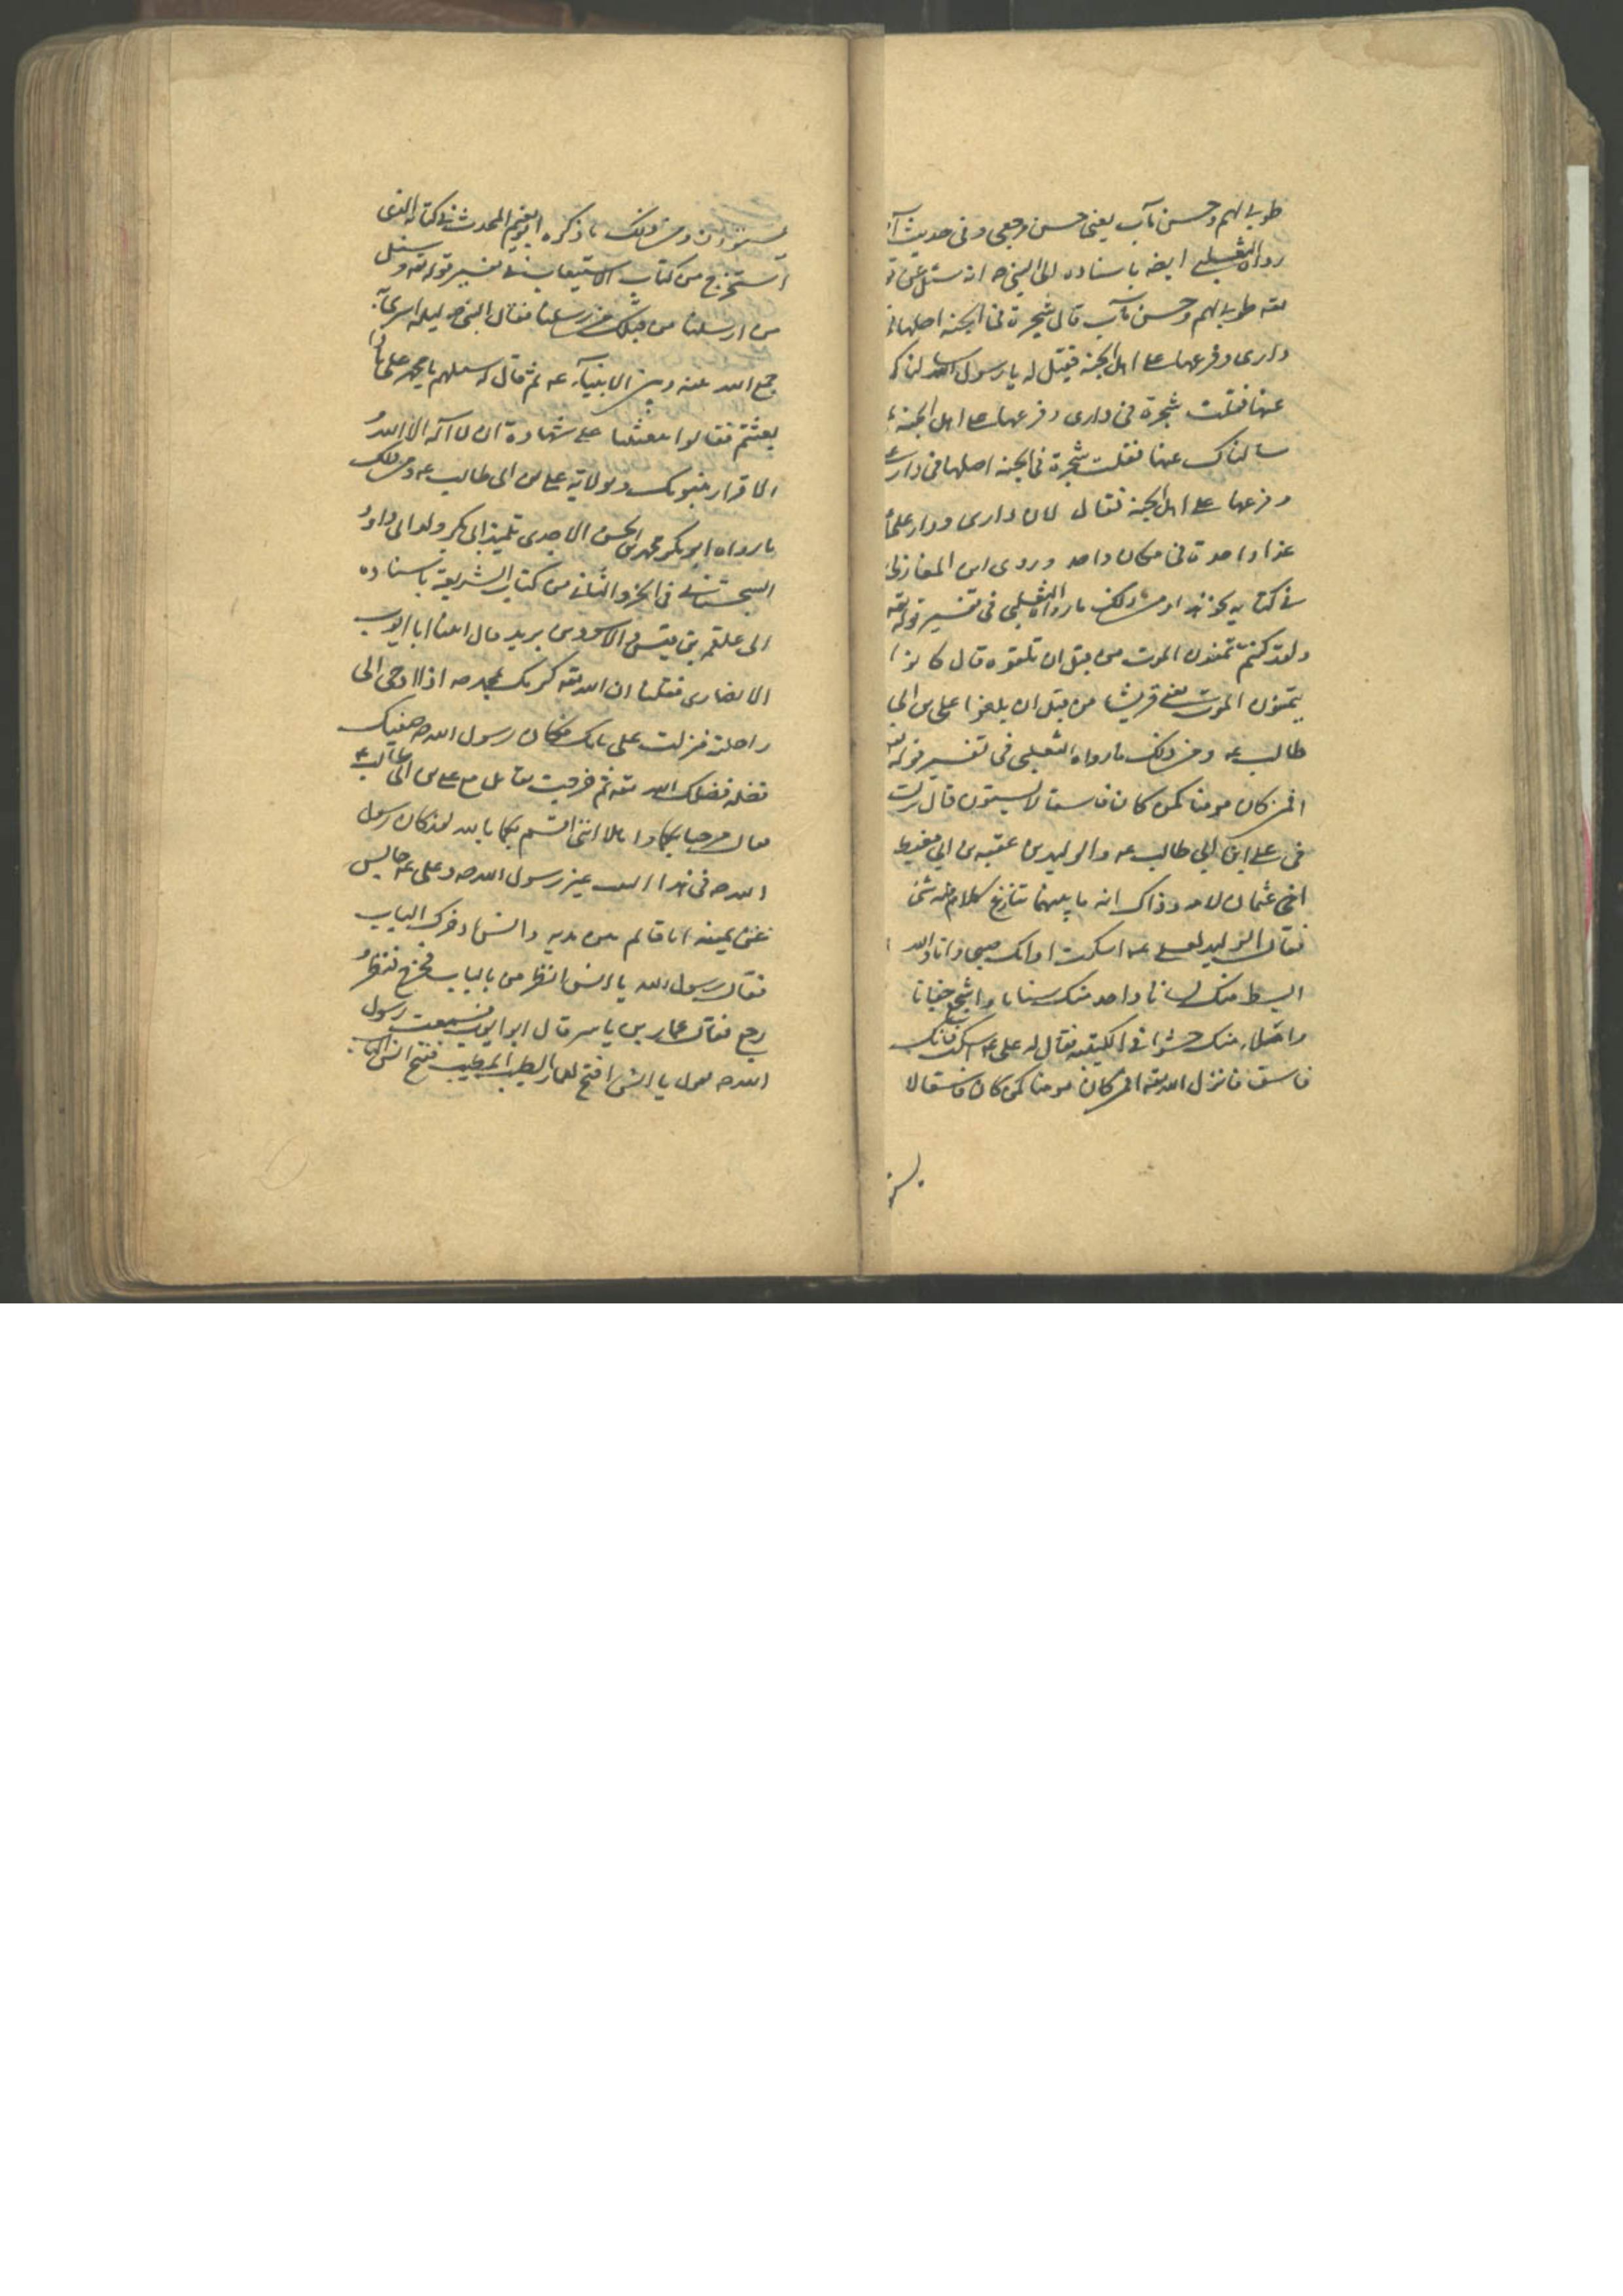 طوبى لهم وحسن مآب يعنى حسن مرجعى وفى حديث
رواه الثعلبي ايضا باسناده الى النبي ص انه سئل عن
تعه طوبى لهم وحسن مآب قال شجرة فى الجنة اصلها فى
دارى وفرعها على اهل الجنة فقيل له يا رسول الله سالناك
عنها فقلت شجرة فى دارى وفرعها على اهل الجنة
سالناك عنها فقلت شجرة فى الجنة اصلها فى دار على
وفرعها على اهل الجنة فقال لان دارى ودار على
غدا واحدة فى مكان واحد وروى ابن المغازلى
فى كتابه نحو هذا ومن ذلك ما رواه الثعلبي فى تفسير قوله تعه
ولقد كنتم تمنون الموت من قبل ان تلقوه قال كانوا
يتمنون الموت يعنى قريشا من قبل ان يلقوا على بن ابى
طالب عه ومن ذلك ما رواه الثعلبي فى تفسير قوله تعه
افمن كان مومنا كمن كان فاسقا لا يستون قال نزلت
فى على ابن ابي طالب عه والوليد بن عقبه بن ابي معيط
اخى عثمان لامه وذاك انه ما بينهما تنازع كلام فى شئ
فقال الوليد لعلى عه اسكت فانك صبى وانا والله
ابسط منك لسانا واحد منك سنانا واشجع جنانا
واملاء منك حشوا فى الكتيبة فقال له على عه اسكت فانك
فاسق فانزل الله تعه افمن كان مومنا كمن كان فاسقا لا
يستو
يستوون ومن ذلك ما ذكره ابو نعيم المحدث فى كتابه الذى
استخرج من كتاب الاستيعاب فى تفسير قوله تعه وسئل
من ارسلنا من قبلك من رسلنا فقال النبي ص ليلة اسرى به
جمع الله بينه وبين الانبياء عه ثم قال له سلهم يا محمد على ما ذا
بعثتم فقالوا بعثنا على شهادة ان لا اله الا الله
الاقرار بنبوتك وبولاية على بن ابى طالب عه ومن ذلك
ما رواه ابو بكر محمد بن الحسن الاجدى تلميذ ابى بكر ولد ابى داود
السجستانى فى الجزو الثانى من كتاب الشريعة باسناده
الى علقمه بن قيس والاسود بن بريد قال اتينا ابا ايوب
الانصارى فقلنا ان الله تعه كرمك بمحمد ص اذ اوحى الى
راحلته فنزلت على بابك فكان رسول الله ص ضيفك
فضله فضلك الله تعه ثم خرجت تقاتل مع على بن ابى طالب عه
قال مرحبا بكما واهلا اننى اقسم بكما بالله لقد كان رسول
الله ص فى هذا البيت غير رسول الله ص وعلى عه جالس
عن يمينه انا قائم بين يديه وانس اذ حرك الباب
فقال رسول الله يا انس انظر من بالباب فخرج فنظر و
رجع فقال عمار بن ياسر قال ابو ايوب فسمعت رسول
الله ص يقول يا انس افتح لعمار الطيب المطيب ففتح انس الباب